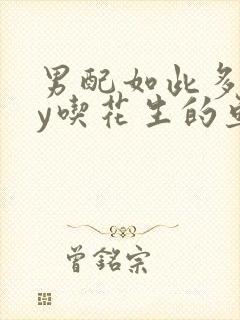 男配如此多
y喫花生的
曾銘宗